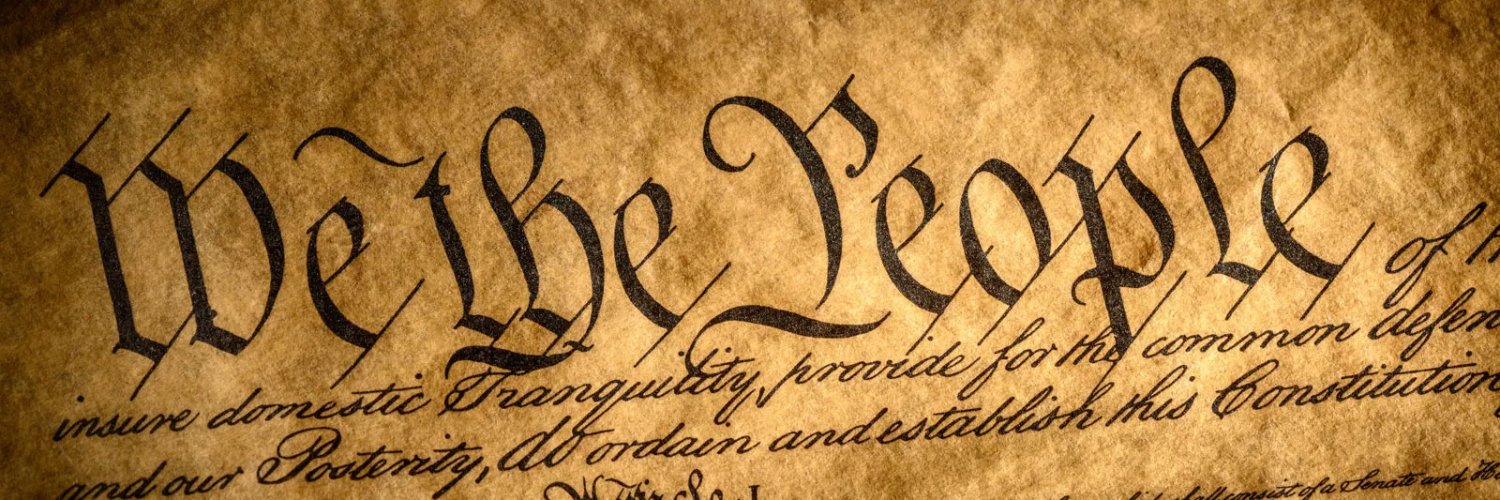 We the People of
insure domestic Tranquility, provide for the common
and our Posterity, do ordain and establish this Constitution
shall consist of a Senate and